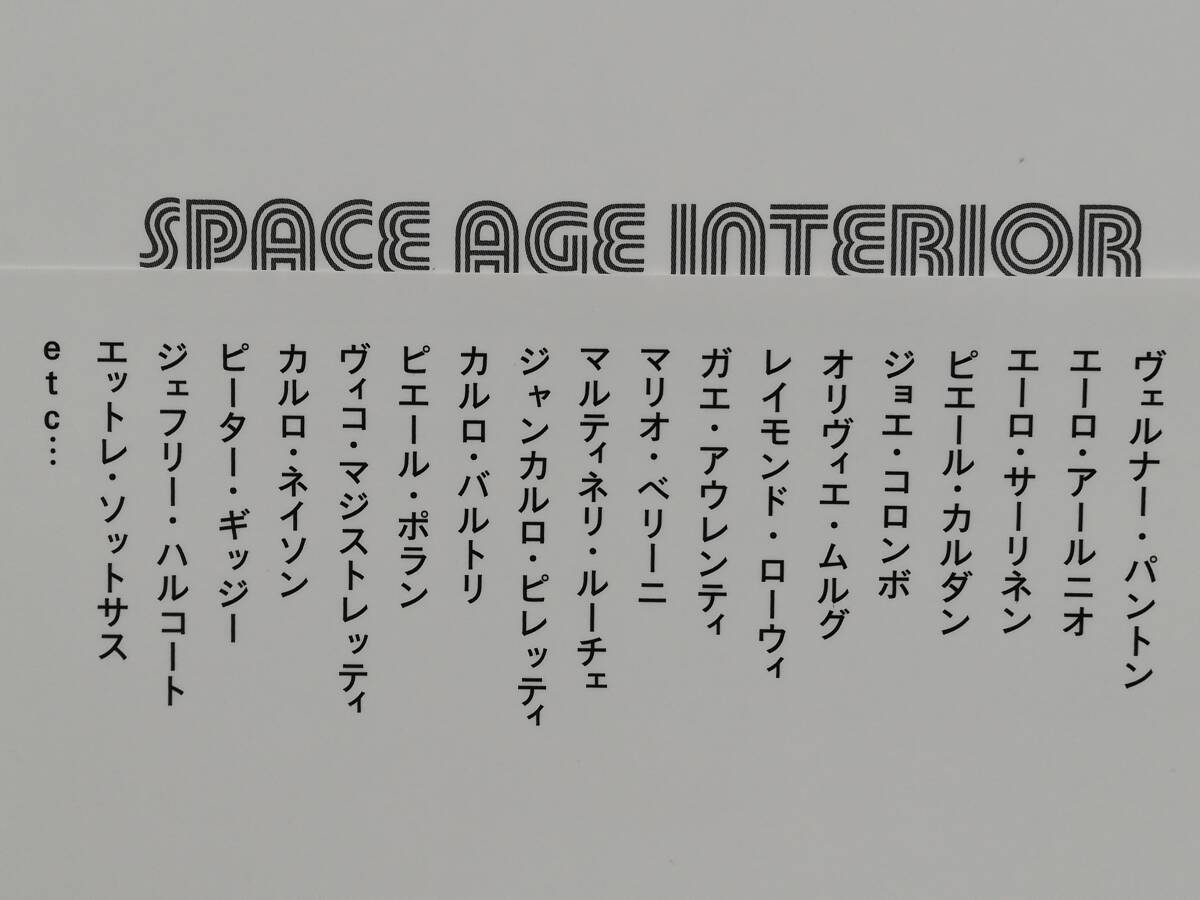 SPACE AGE INTERIOR
ヴェルナー・パントン
エーロ・アールニオ
エーロ・サーリネン
ピエール・カルダン
ジョエ・コロンボ
オリヴィエ・ムルグ
レイモンド・ローウィ
ガエ・アウレンティ
マリオ・ベリーニ
マルティネリ・ルーチェ
ジャンカルロ・ピレッティ
カルロ・バルトリ
ピエール・ポラン
ヴィコ・マジストレッティ
カルロ・ネイソン
ピーター・ギッジー
ジェフリー・ハルコート
エットレ・ソットサス
etc…